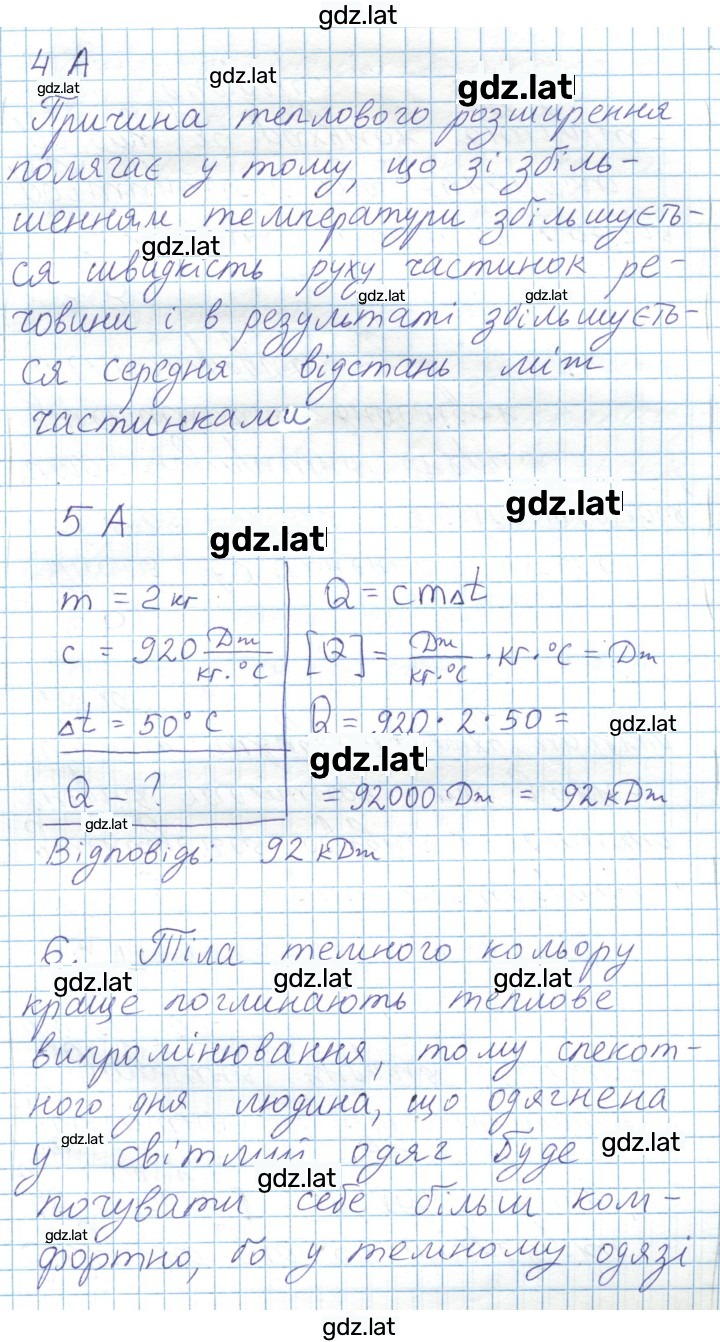 gdz.lat
4 А
gdz.lat gdz.lat gdz.lat
Причина теплового розширення
полягає у тому, що зі збіль-
шенням температури збільшуєть-
gdz.lat
ся швидкість руху частинок ре-
gdz.lat gdz.lat
човини і в результаті збільшуєть-
ся середня відстань між
частинками
gdz.lat
5 А
gdz.lat
m = 2 кг
c = 920 Дж/кг·°С
Δt = 50° С
Q - ?
gdz.lat
Q = cmΔt
[Q] = Дж/кг·°С · кг · °С = Дж
Q = 920 · 2 · 50 =
gdz.lat
gdz.lat
= 92000 Дж = 92 кДж
Відповідь: 92 кДж
6. Тіла темного кольору
gdz.lat gdz.lat gdz.lat
краще поглинають теплове
випромінювання, тому спекот-
ного дня людина, що одягнена
gdz.lat gdz.lat
у світлий одяг буде
gdz.lat
почувати себе більш ком-
gdz.lat
фортно, бо у темному одязі
gdz.lat